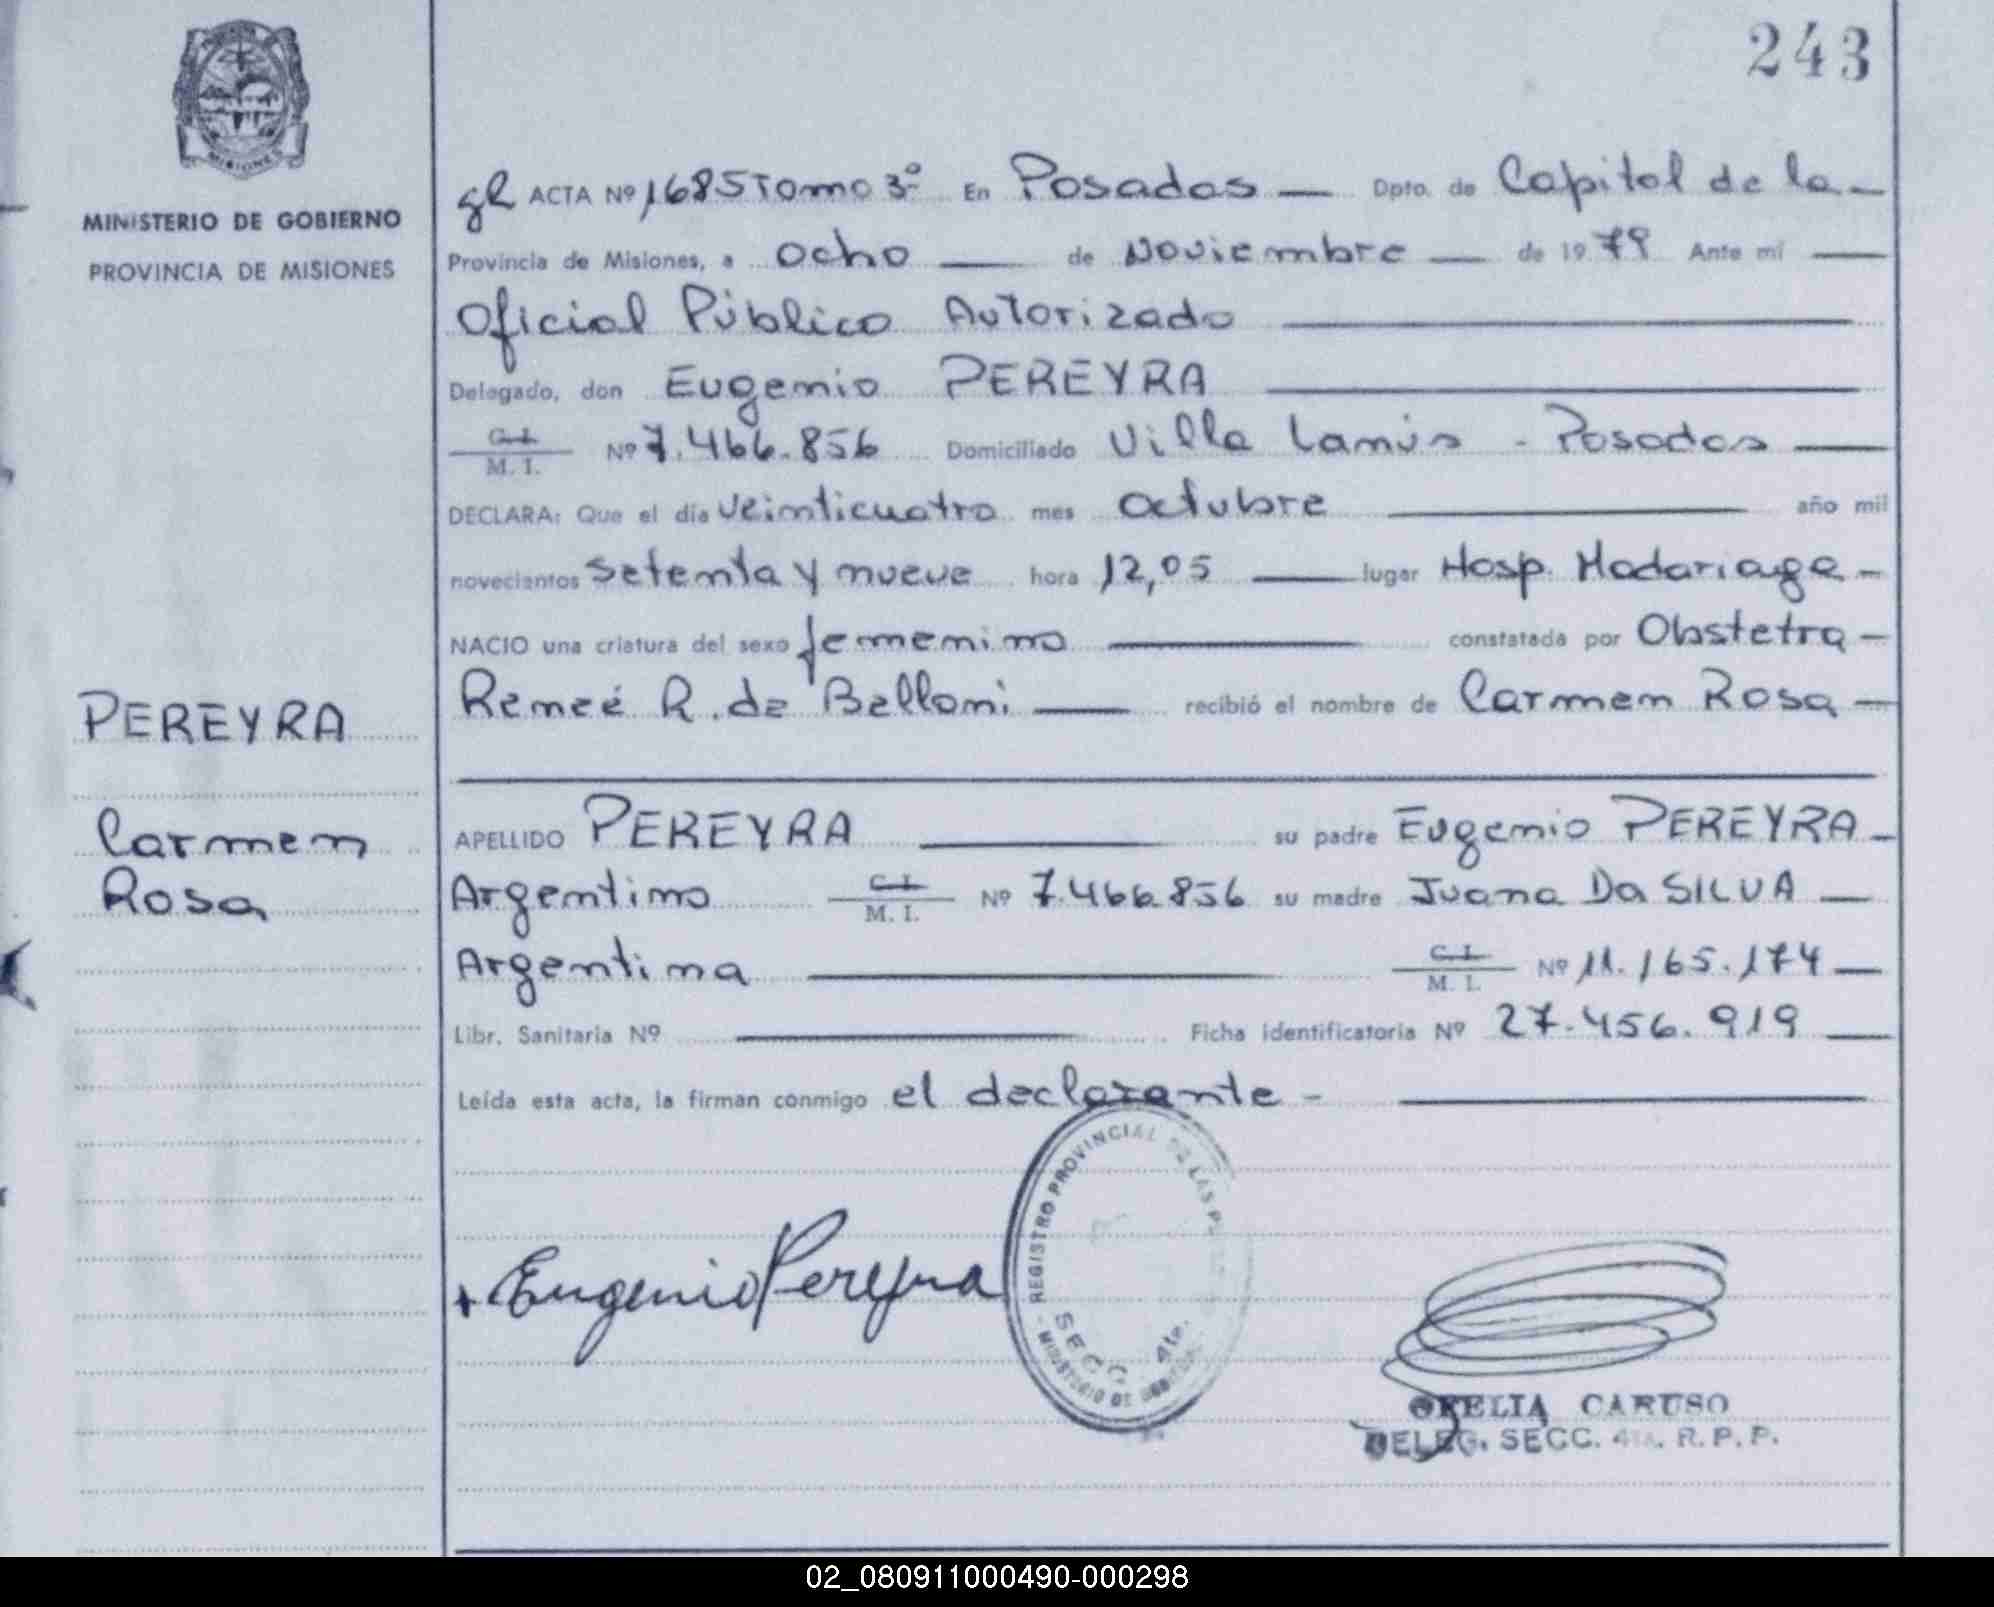 243
MISIONES
MINISTERIO DE GOBIERNO
PROVINCIA DE MISIONES
PEREYRA
Carmen
Rosa
ACTA Nº 1685 Tomo 3º En Posadas — Dpto. de Capital de la —
Provincia de Misiones, a ocho — de Noviembre — de 1979 Ante mí —
Oficial Público Autorizado —
Delegado, don Eugenio PEREYRA —
C. I. / M. I. Nº 7.466.856 Domiciliado Villa Lanús - Posadas —
DECLARA: Que el día veinticuatro mes octubre — año mil
novecientos setenta y nueve hora 12,05 — lugar Hosp. Madariaga —
NACIO una criatura del sexo femenino — constatada por Obstetra —
Reneé R. de Belloni — recibió el nombre de Carmen Rosa —
APELLIDO PEREYRA — su padre Eugenio PEREYRA —
Argentino C. I. / M. I. Nº 7.466.856 su madre Juana Da SILVA —
Argentina — C. I. / M. I. Nº 11.165.174 —
Libr. Sanitaria Nº — Ficha identificatoria Nº 27.456.919 —
Leída esta acta, la firman conmigo el declarante - —
REGISTRO PROVINCIAL DE LAS
SECC. 4ta.
MINISTERIO DE
+ Eugenio Pereyra
OFELIA CARUSO
DELEG. SECC. 4ta. R. P. P.
02_080911000490-000298